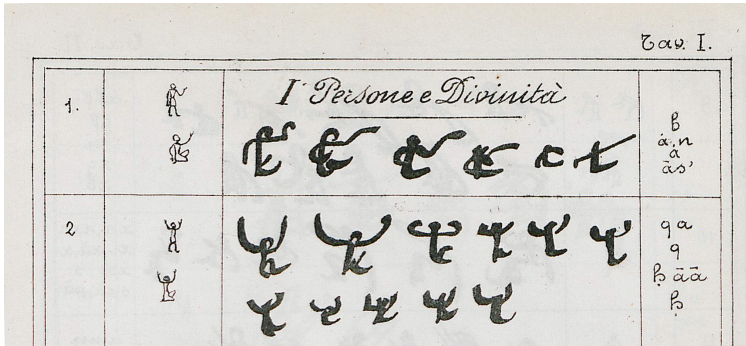 Tav. I.
I Persone e Divinità
1.
ȧ, n
ās'
2
q a
q
ḥ āā
ḥ